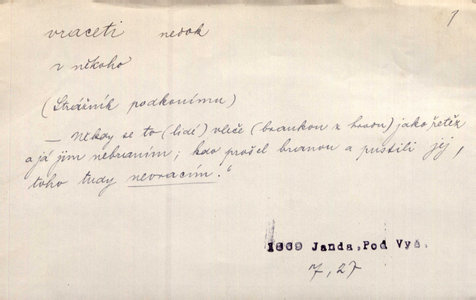 1
vraceti nedok
v někoho
(Strážník podkonímu)
— Někdy se to (lidé) vleče (brankou z hradu) jako řetěz
a já jim nebráním; kdo prošel branou a pustili jej,
toho tudy nevracím."
1869 Janda, Pod Vyš.
7, 27